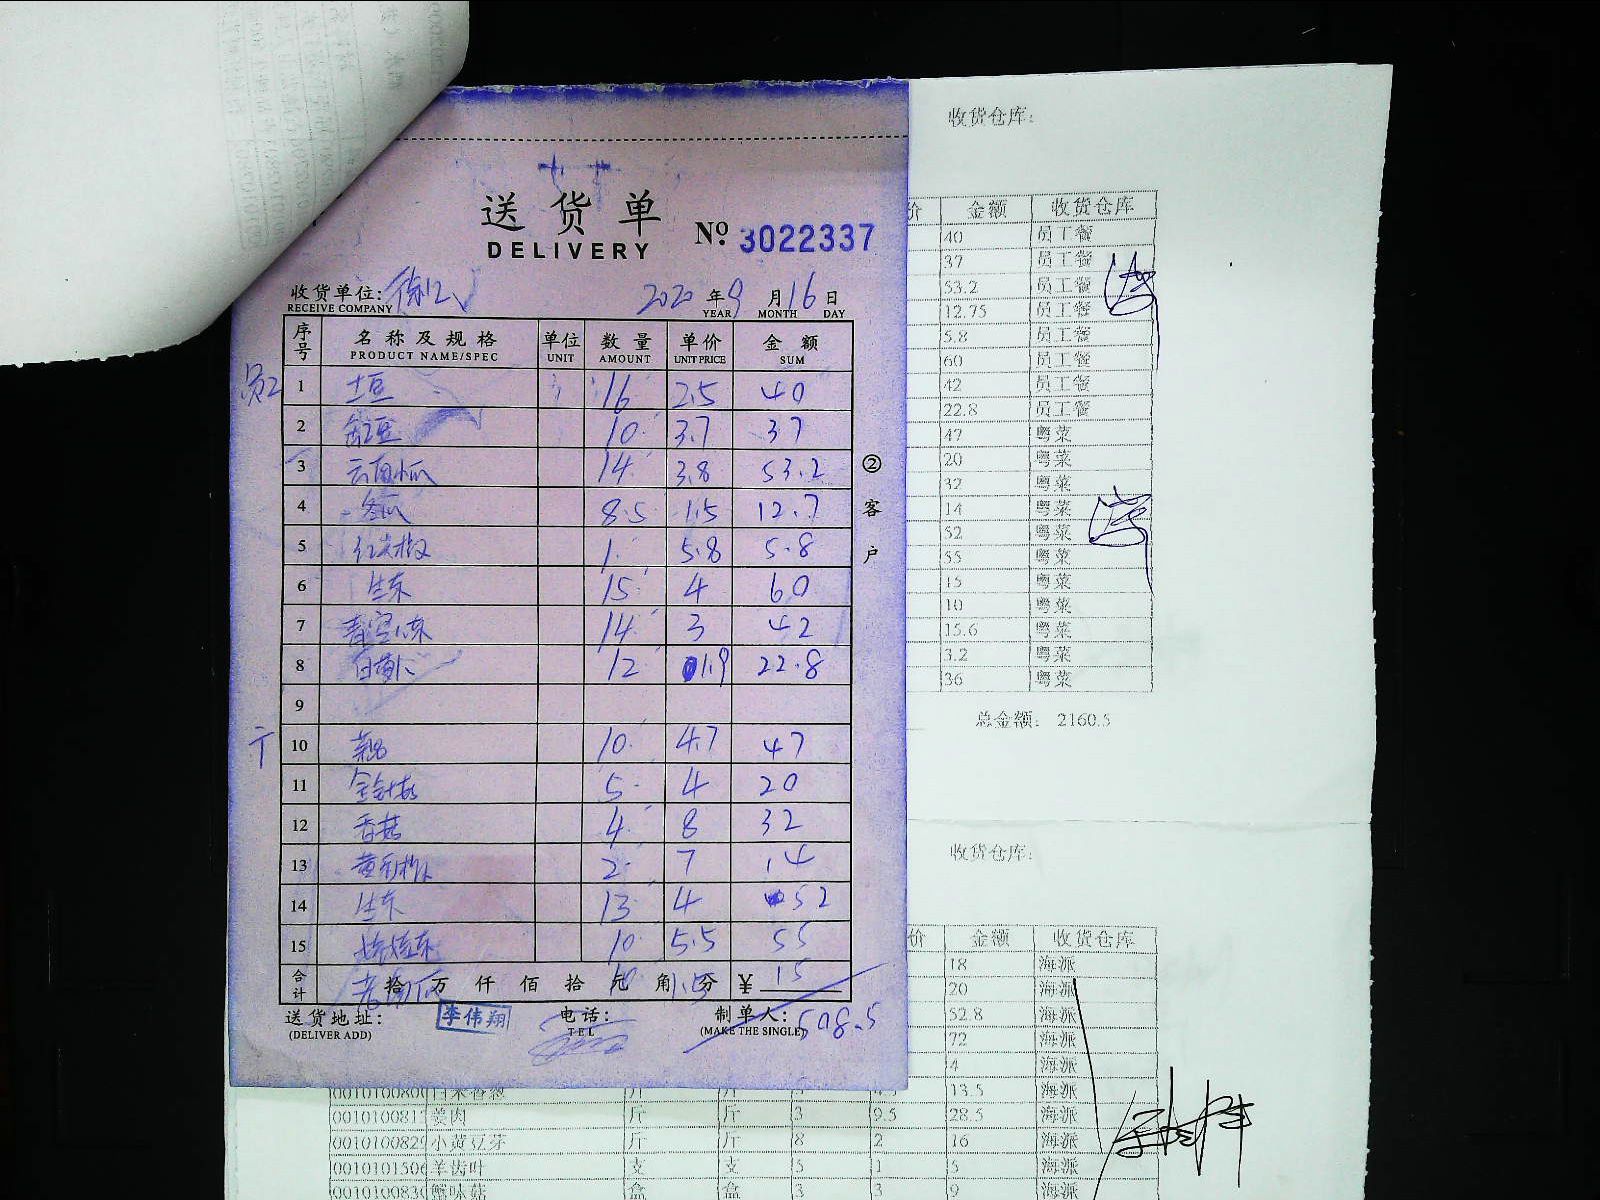 送货单
DELIVERY
No 3022337
收货单位:
RECEIVE COMPANY
2020 年 9 月 16 日
YEAR MONTH DAY
序号 名称及规格 单位 数量 单价 金额
PRODUCT NAME/SPEC UNIT AMOUNT UNIT PRICE SUM
员工
1 土豆 16 2.5 40
2 豇豆 10 3.7 37
3 云南小瓜 14 3.8 53.2
4 冬瓜 8.5 1.5 12.7
5 红尖椒 1 5.8 5.8
6 生菜 15 4 60
7 14 3 42
8 12 1.9 22.8
9
10 10 4.7 47
11 金针菇 5 4 20
12 香菇 4 8 32
13 2 7 14
14 生菜 13 4 52
15 10 5.5 55
合计 拾 万 仟 佰 拾 元 角 分 ¥ 15
10 1.5
送货地址:
(DELIVER ADD)
李伟翔
电话:
TEL
制单人:
(MAKE THE SINGLE)
508.5
②客户
收货仓库:
价 金额 收货仓库
40 员工餐
37 员工餐
53.2 员工餐
12.75 员工餐
5.8 员工餐
60 员工餐
42 员工餐
22.8 员工餐
47 粤菜
20 粤菜
32 粤菜
14 粤菜
52 粤菜
55 粤菜
15 粤菜
10 粤菜
15.6 粤菜
3.2 粤菜
36 粤菜
总金额: 2160.5
收货仓库:
价 金额 收货仓库
18 海派
20 海派
52.8 海派
72 海派
4 海派
13.5 海派
001010081 姜肉 斤 斤 3 9.5 28.5 海派
001010082 小黄豆芽 斤 斤 8 2 16 海派
001010150 羊齿叶 支 支 5 1 5 海派
001010083 蟹味菇 盒 盒 3 3 9 海派